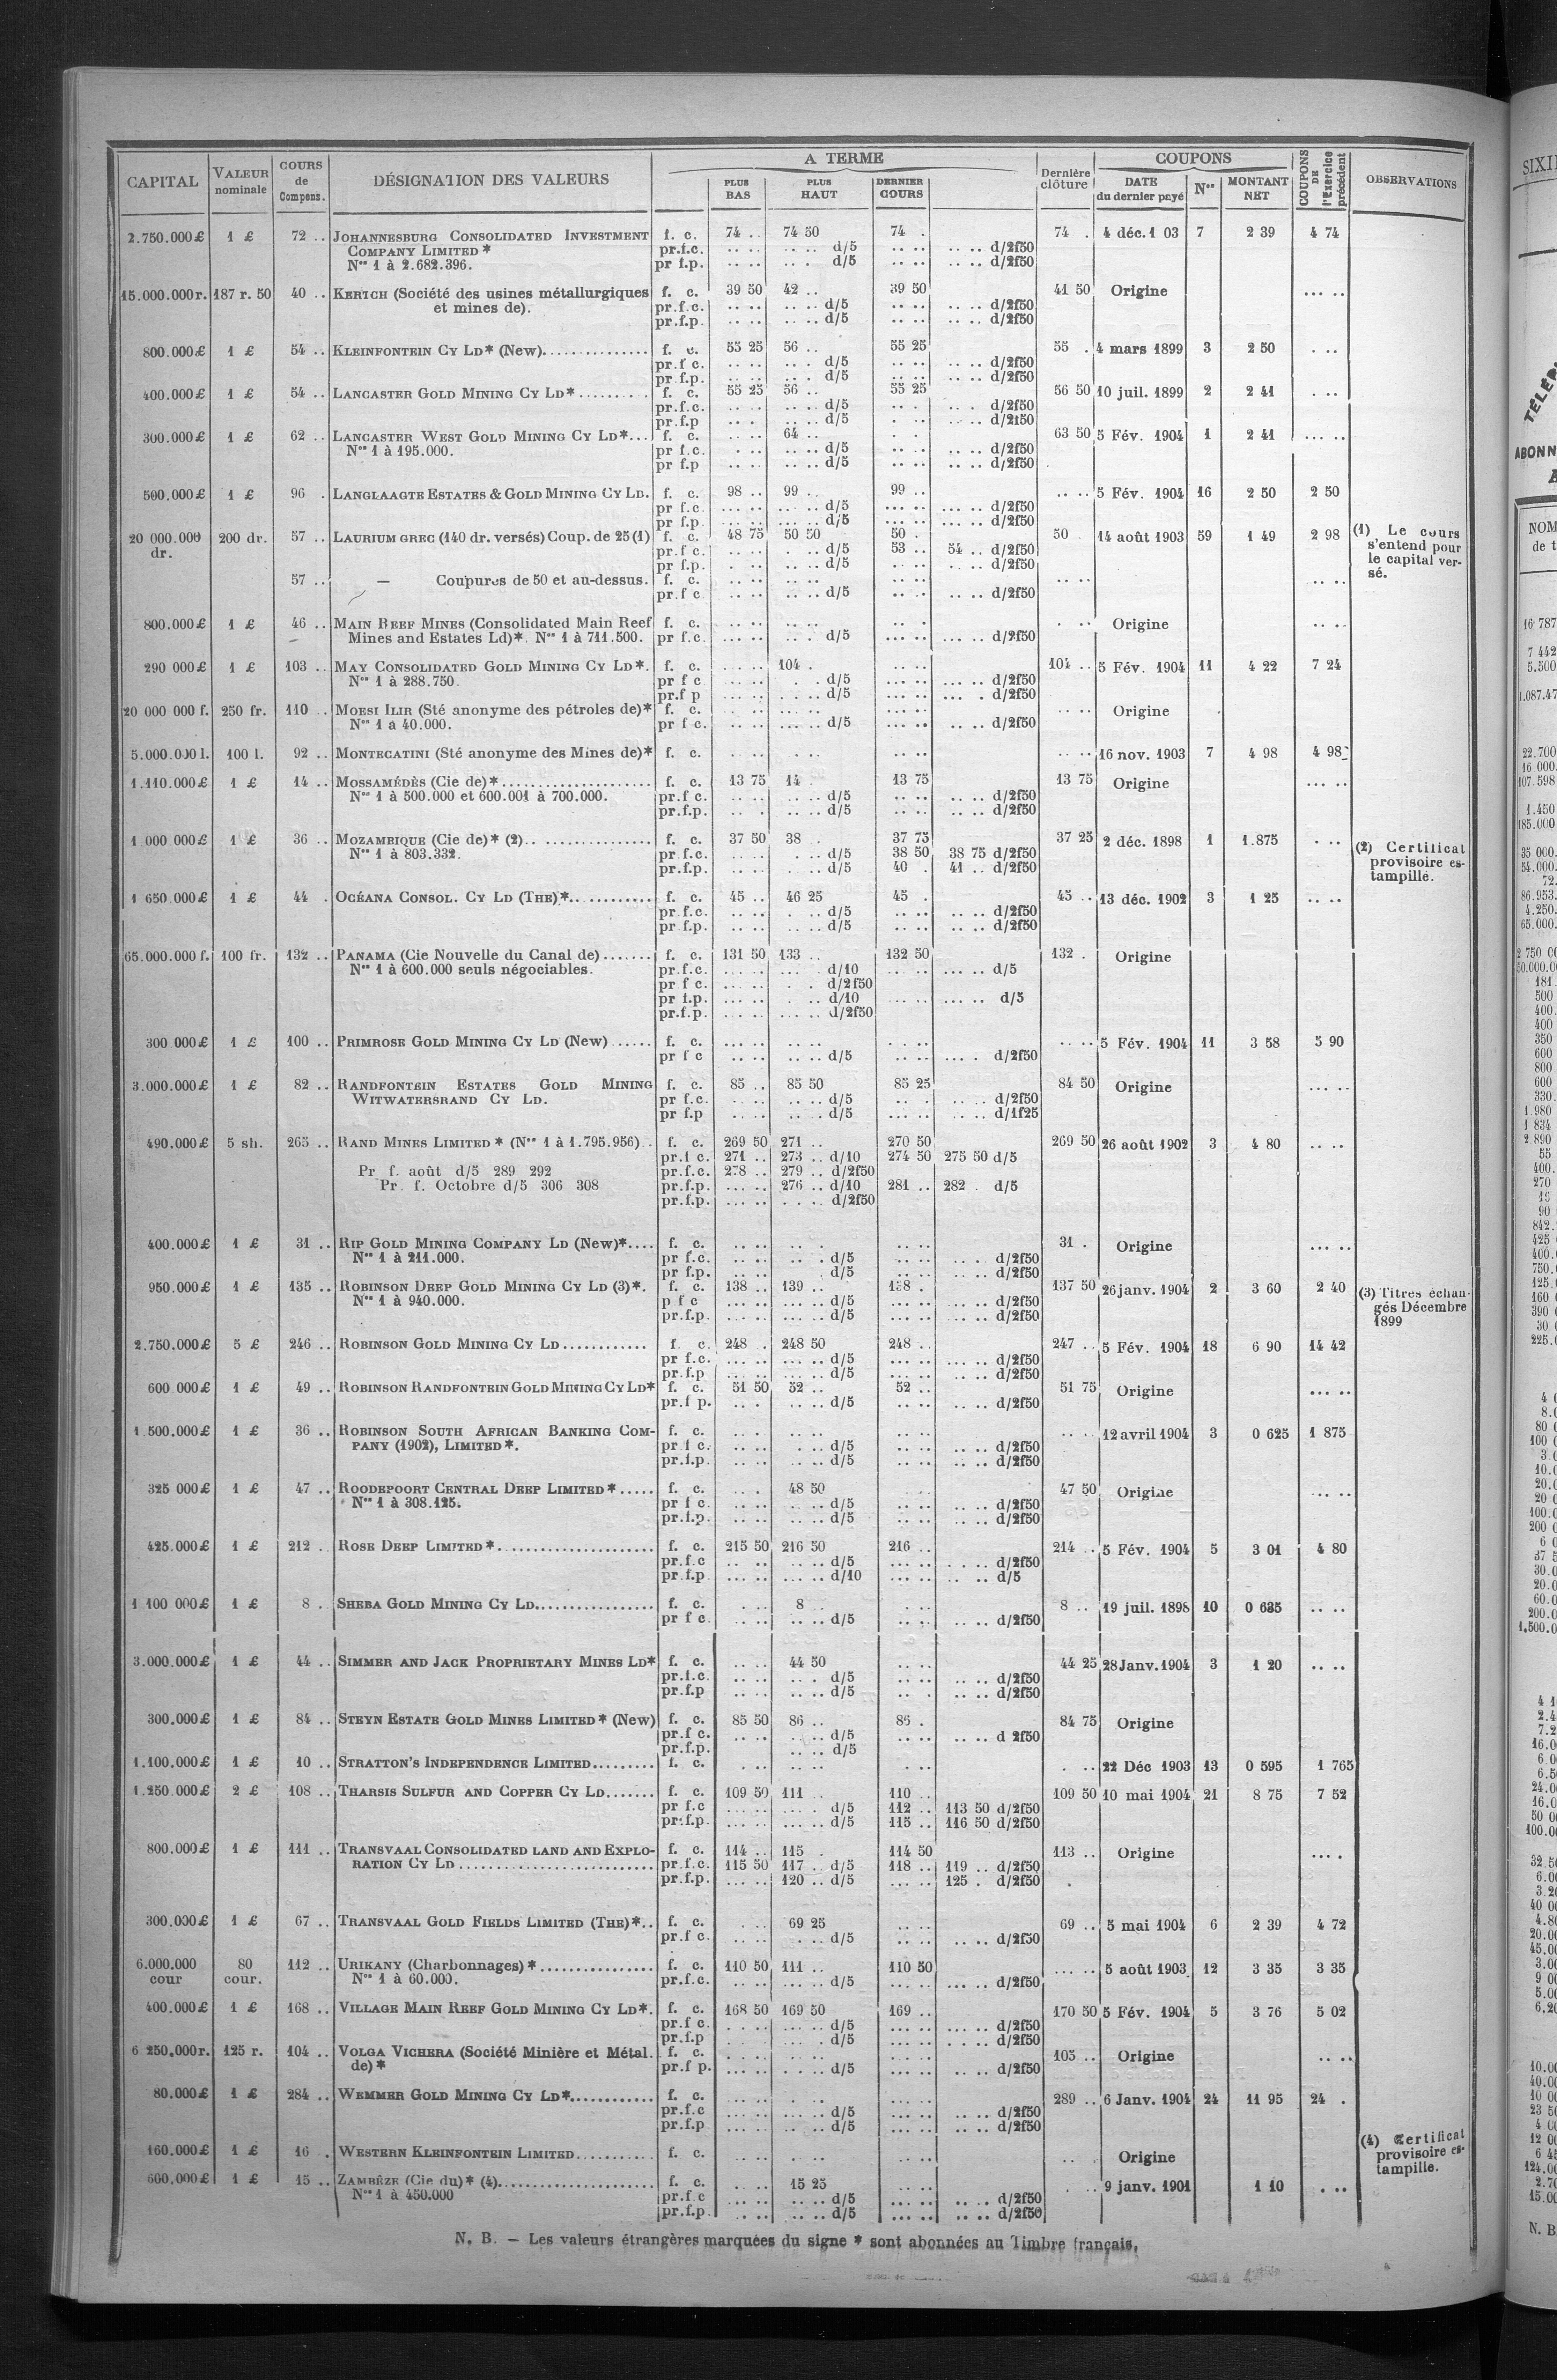 CAPITAL | VALEUR nominale | COURS de Compens. | DÉSIGNATION DES VALEURS | A TERME | PLUS BAS | PLUS HAUT | DERNIER COURS | Dernière clôture | COUPONS | DATE du dernier payé | Nos | MONTANT NET | COUPONS DE l'Exercice précédent | OBSERVATIONS
2.750.000£ 1 £ 72 .. JOHANNESBURG CONSOLIDATED INVESTMENT f. c. 74 .. 74 50 74 . 74 . 4 déc.1 03 7 2 39 4 74
COMPANY LIMITED * pr.f.c. .. .. .. .. d/5 .. .. .. .. d/2f50
Nos 1 à 2.682.396. pr f.p. .. .. .. . d/5 .. .. .. .. d/2f50
15.000.000r. 187 r. 50 40 .. KERTCH (Société des usines métallurgiques f. c. 39 50 42 .. 39 50 41 50 Origine ... ..
et mines de). pr.f.c. .. .. .. .. d/5 .. .. .. .. d/2f50
pr.f.p. .. .. .. .. d/5 .. .. .. .. d/2f50
800.000£ 1 £ 54 .. KLEINFONTEIN CY LD* (New)............... f. c. 55 25 56 .. 55 25 55 . 4 mars 1899 3 2 50 . ..
pr.f c. .. .. .. . d/5 .. .. .. .. d/2f50
pr.f.p. .. .. .. . d/5 .. .. .. .. d/2f50
400.000£ 1 £ 54 .. LANCASTER GOLD MINING CY LD*.......... f. c. 55 25 56 .. 55 25 56 50 10 juil. 1899 2 2 41 . ..
pr.f.c. .. .. .. .. d/5 .. . .. . d/2f50
pr.f.p .. . .. .. d/5 . .. .. .. d/2f50
300.000£ 1 £ 62 .. LANCASTER WEST GOLD MINING CY LD*... f. c. .. .. 64 .. . . 63 50 5 Fév. 1904 1 2 41 ... ..
Nos 1 à 195.000. pr f.c. . .. .. .. d/5 .. .. .. .. d/2f50
pr f.p .. .. .. .. d/5 .. .. .. .. d/2f50
500.000£ 1 £ 96 . LANGLAAGTE ESTATES & GOLD MINING CY LD. f. c. 98 .. 99 . 99 .. .. .. 5 Fév. 1904 16 2 50 2 50
pr f.c. ... .. ... .. d/5 ... .. ... .. d/2f50
pr f.p. ... .. ... .. d/5 ... .. ... .. d/2f50
20 000.000 dr. 200 dr. 57 .. LAURIUM GREC (140 dr. versés) Coup. de 25 (1) f. c. 48 75 50 50 50 . 50 14 août 1903 59 1 49 2 98 (1) Le cours
pr.f c. .. .. . .. d/5 53 .. 54 .. d/2f50 s'entend pour
pr f.p. .. .. .. .. d/5 .. .. .. .. d/2f50 le capital ver-
57 .. — Coupures de 50 et au-dessus. f. c. .. .. .. .. .. .. .. .. .. .. sé.
pr.f c .. .. .. .. d/5 .. .. .. .. d/2f50
800.000£ 1 £ 46 .. MAIN REEF MINES (Consolidated Main Reef f. c. .. .. .. .. .. . . .. Origine .. ..
Mines and Estates Ld)*. Nos 1 à 711.500. pr f.c. ... .. .. . d/5 ... .. ... .. d/2f50
290 000£ 1 £ 103 .. MAY CONSOLIDATED GOLD MINING CY LD*. f. c. .. .. 104 . .. .. 104 .. 5 Fév. 1904 11 4 22 7 24
Nos 1 à 288.750. pr f c ... .. . . d/5 ... .. ... .. d/2f50
pr.f p ... .. .. .. d/5 ... .. ... . d/2f50
20 000 000 f. 250 fr. 110 .. MOESI ILIR (Sté anonyme des pétroles de)* f. c. .. .. .. .. .. .. .. .. Origine
Nos 1 à 40.000. pr f c. .. .. .. .. d/5 ... .. .. .. d/2f50
5.000.000 l. 100 l. 92 .. MONTECATINI (Sté anonyme des Mines de)* f. c. .. .. .. .. .. .. .. .. 16 nov. 1903 7 4 98 4 98
1.110.000£ 1 £ 14 .. MOSSAMÉDÈS (Cie de)*..................... f. c. 13 75 14 . 13 75 13 75 Origine ... ..
Nos 1 à 500.000 et 600.001 à 700.000. pr.f c. .. .. .. .. d/5 .. .. .. .. d/2f50
pr.f.p. .. . .. .. d/5 .. .. .. .. d/2f50
1 000 000£ 1 £ 36 .. MOZAMBIQUE (Cie de)* (2).. ............... f. c. 37 50 38 . 37 75 37 25 2 déc. 1898 1 1.875 . .. (2) Certificat
Nos 1 à 803.332. pr.f.c. .. . . .. d/5 38 50 38 75 d/2f50 provisoire es-
pr.f.p. .. .. . .. d/5 40 . 41 .. d/2f50 tampillé.
1 650 000£ 1 £ 44 . OCÉANA CONSOL. CY LD (THE)*............ f. c. 45 .. 46 25 45 . 45 .. 13 déc. 1902 3 1 25 .. ..
pr f.c. .. .. . .. d/5 .. .. .. .. d/2f50
pr f.p. .. .. .. .. d/5 .. .. .. .. d/2f50
65.000.000 f. 100 fr. 132 .. PANAMA (Cie Nouvelle du Canal de)....... f. c. 131 50 133 .. 132 50 132 . Origine
Nos 1 à 600.000 seuls négociables. pr.f.c. ... .. ... d/10 ... .. ... .. d/5
pr f c ... .. . . d/2f50
pr f.p. ... .. .. . d/10 .. .. ... .. d/5
pr.f.p. ... .. .. .. d/2f50
300 000£ 1 £ 100 .. PRIMROSE GOLD MINING CY LD (New)...... f. c. ... .. .. .. . .. .. .. 5 Fév. 1904 11 3 58 5 90
pr f c ... .. .. .. d/5 ... .. ... . d/2f50
3.000.000£ 1 £ 82 .. RANDFONTEIN ESTATES GOLD MINING f. c. 85 .. 85 50 85 25 84 50 Origine ... ..
WITWATERSRAND CY LD. pr f.c. .. .. .. .. d/5 .. . .. .. d/2f50
pr f.p .. .. .. .. d/5 ... .. .. .. d/1f25
490.000£ 5 sh. 265 .. RAND MINES LIMITED * (Nos 1 à 1.795.956).. f. c. 269 50 271 .. 270 50 269 50 26 août 1902 3 4 80 .. ..
pr.f c. 271 .. 273 .. d/10 274 50 275 50 d/5
Pr f. août d/5 289 292 pr.f.c. 278 .. 279 .. d/2f50
Pr. f. Octobre d/5 306 308 pr.f.p. ... .. 276 .. d/10 281 .. 282 . d/5
pr.f.p. ... .. . .. d/2f50
400.000£ 1 £ 31 .. RIP GOLD MINING COMPANY LD (New)*.... f. c. .. .. .. . .. .. 31 . Origine ... ..
Nos 1 à 211.000. pr f.c. .. .. .. . d/5 .. .. .. . d/2f50
pr f.p. .. .. . d/5 .. .. .. .. d/2f50
950.000£ 1 £ 135 .. ROBINSON DEEP GOLD MINING CY LD (3)*. f. c. 138 .. 139 .. 138 . 137 50 26 janv. 1904 2 3 60 2 40 (3) Titres échan-
Nos 1 à 940.000. p f c ... .. ... .. d/5 ... .. ... .. d/2f50 gés Décembre
pr.f.p. ... .. ... .. d/5 ... .. ... .. d/2f50 1899
2.750.000£ 5 £ 246 .. ROBINSON GOLD MINING CY LD............ f. c. 248 . 248 50 248 .. 247 .. 5 Fév. 1904 18 6 90 14 42
pr f.c. ... .. ... .. d/5 ... .. ... .. d/2f50
pr.f.p ... .. ... .. d/5 ... .. ... .. d/2f50
600 000£ 1 £ 49 .. ROBINSON RANDFONTEIN GOLD MINING CY LD* f. c. 51 50 52 .. 52 .. 51 75 Origine ... ..
pr.f p. .. . .. .. d/5 .. .. .. .. d/2f50
1.500.000£ 1 £ 36 .. ROBINSON SOUTH AFRICAN BANKING COM- f. c. .. . .. .. .. .. .. .. 12 avril 1904 3 0 625 1 875
PANY (1902), LIMITED *. pr f c. .. .. .. . d/5 .. .. .. .. d/2f50
pr.f.p. .. .. .. .. d/5 .. .. .. .. d/2f50
325 000£ 1 £ 47 .. ROODEPOORT CENTRAL DEEP LIMITED *..... f. c. .. . 48 50 47 50 Origine .. ..
Nos 1 à 308.125. pr f c. .. .. .. .. d/5 .. .. .. .. d/2f50
pr.f.p. .. .. .. .. d/5 .. .. .. .. d/2f50
425.000£ 1 £ 212 .. ROSE DEEP LIMITED *...................... f. c. 215 50 216 50 216 .. 214 .. 5 Fév. 1904 5 3 01 4 80
pr.f.c .. .. ... .. d/5 ... .. . .. .. d/2f50
pr.f.p ... .. ... .. d/10 ... .. .. .. d/5
1 100 000£ 1 £ 8 .. SHEBA GOLD MINING CY LD................. f. c. . .. 8 . . .. 8 .. 19 juil. 1898 10 0 625 .. ..
pr f c. .. .. .. .. d/5 .. .. .. .. d/2f50
3.000.000£ 1 £ 44 .. SIMMER AND JACK PROPRIETARY MINES LD* f. c. .. .. 44 50 .. .. 44 25 28 Janv. 1904 3 1 20 .. ..
pr.f.c. .. .. .. . d/5 .. .. .. .. d/2f50
pr.f.p .. .. .. .. d/5 .. . .. .. d/2f50
300.000£ 1 £ 84 .. STEYN ESTATE GOLD MINES LIMITED * (New) f. c. 85 50 86 .. 86 . 84 75 Origine
pr.f c. .. .. .. .. d/5 .. .. .. .. d 2f50
pr.f.p. .. .. d/5
1.100.000£ 1 £ 10 .. STRATTON'S INDEPENDENCE LIMITED......... f. c. . .. .. .. . .. . .. 22 Déc 1903 13 0 595 1 765
1.250 000£ 2 £ 108 .. THARSIS SULFUR AND COPPER CY LD....... f. c. 109 50 111 .. 110 .. 109 50 10 mai 1904 21 8 75 7 52
pr f.c ... .. ... . d/5 112 .. 113 50 d/2f50
pr.f.p. ... .. ... .. d/5 115 .. 116 50 d/2f50
800.000£ 1 £ 111 .. TRANSVAAL CONSOLIDATED LAND AND EXPLO- f. c. 114 .. 115 . 114 50 113 .. Origine ... .
RATION CY LD ........................... pr.f.c. 115 50 117 .. d/5 118 .. 119 .. d/2f50
pr.f.p. ... .. 120 .. d/5 ... .. 125 . d/2f50
300.000£ 1 £ 67 .. TRANSVAAL GOLD FIELDS LIMITED (THE)*.. f. c. . .. 69 25 .. .. 69 .. 5 mai 1904 6 2 39 4 72
pr.f c. .. .. . .. d/5 .. .. .. .. d/2f50
6.000.000 cour 80 cour. 112 .. URIKANY (Charbonnages) *................ f. c. 110 50 111 .. 110 50 ... .. 5 août 1903 12 3 35 3 35
Nos 1 à 60.000. pr.f.c. .. .. ... .. d/5 ... .. ... .. d/2f50
400.000£ 1 £ 168 .. VILLAGE MAIN REEF GOLD MINING CY LD*. f. c. 168 50 169 50 169 .. 170 50 5 Fév. 1904 5 3 76 5 02
pr.f c. . .. ... .. d/5 ... .. ... .. d/2f50
pr.f.p . .. ... . d/5 ... .. ... .. d/2f50
6 250.000r. 125 r. 104 .. VOLGA VICHERA (Société Minière et Métal. f. c. .. .. .. .. .. .. 105 .. Origine .. ..
de) * pr.f p. ... .. ... .. d/5 ... .. .. .. d/2f50
80.000£ 1 £ 284 .. WEMMER GOLD MINING CY LD*............ f. c. ... .. .. . ... .. 289 .. 6 Janv. 1904 24 11 95 24 .
pr.f.c ... .. ... .. d/5 ... .. .. .. d/2f50
pr.f.p ... .. ... .. d/5 ... .. .. .. d/2f50
160.000£ 1 £ 16 . WESTERN KLEINFONTEIN LIMITED........... f. c. .. .. .. .. .. .. .. . Origine (4) Certificat
600.000£ 1 £ 15 .. ZAMBÈZE (Cie du)* (4)...................... f. c. .. .. 15 25 .. .. . .. 9 janv. 1901 1 10 . .. provisoire es-
Nos 1 à 450.000 pr.f.c ... .. .. .. d/5 ... .. .. .. d/2f50 tampille.
pr.f.p .. .. .. .. d/5 ... .. .. .. d/2f50
N. B. — Les valeurs étrangères marquées du signe * sont abonnées au Timbre français.